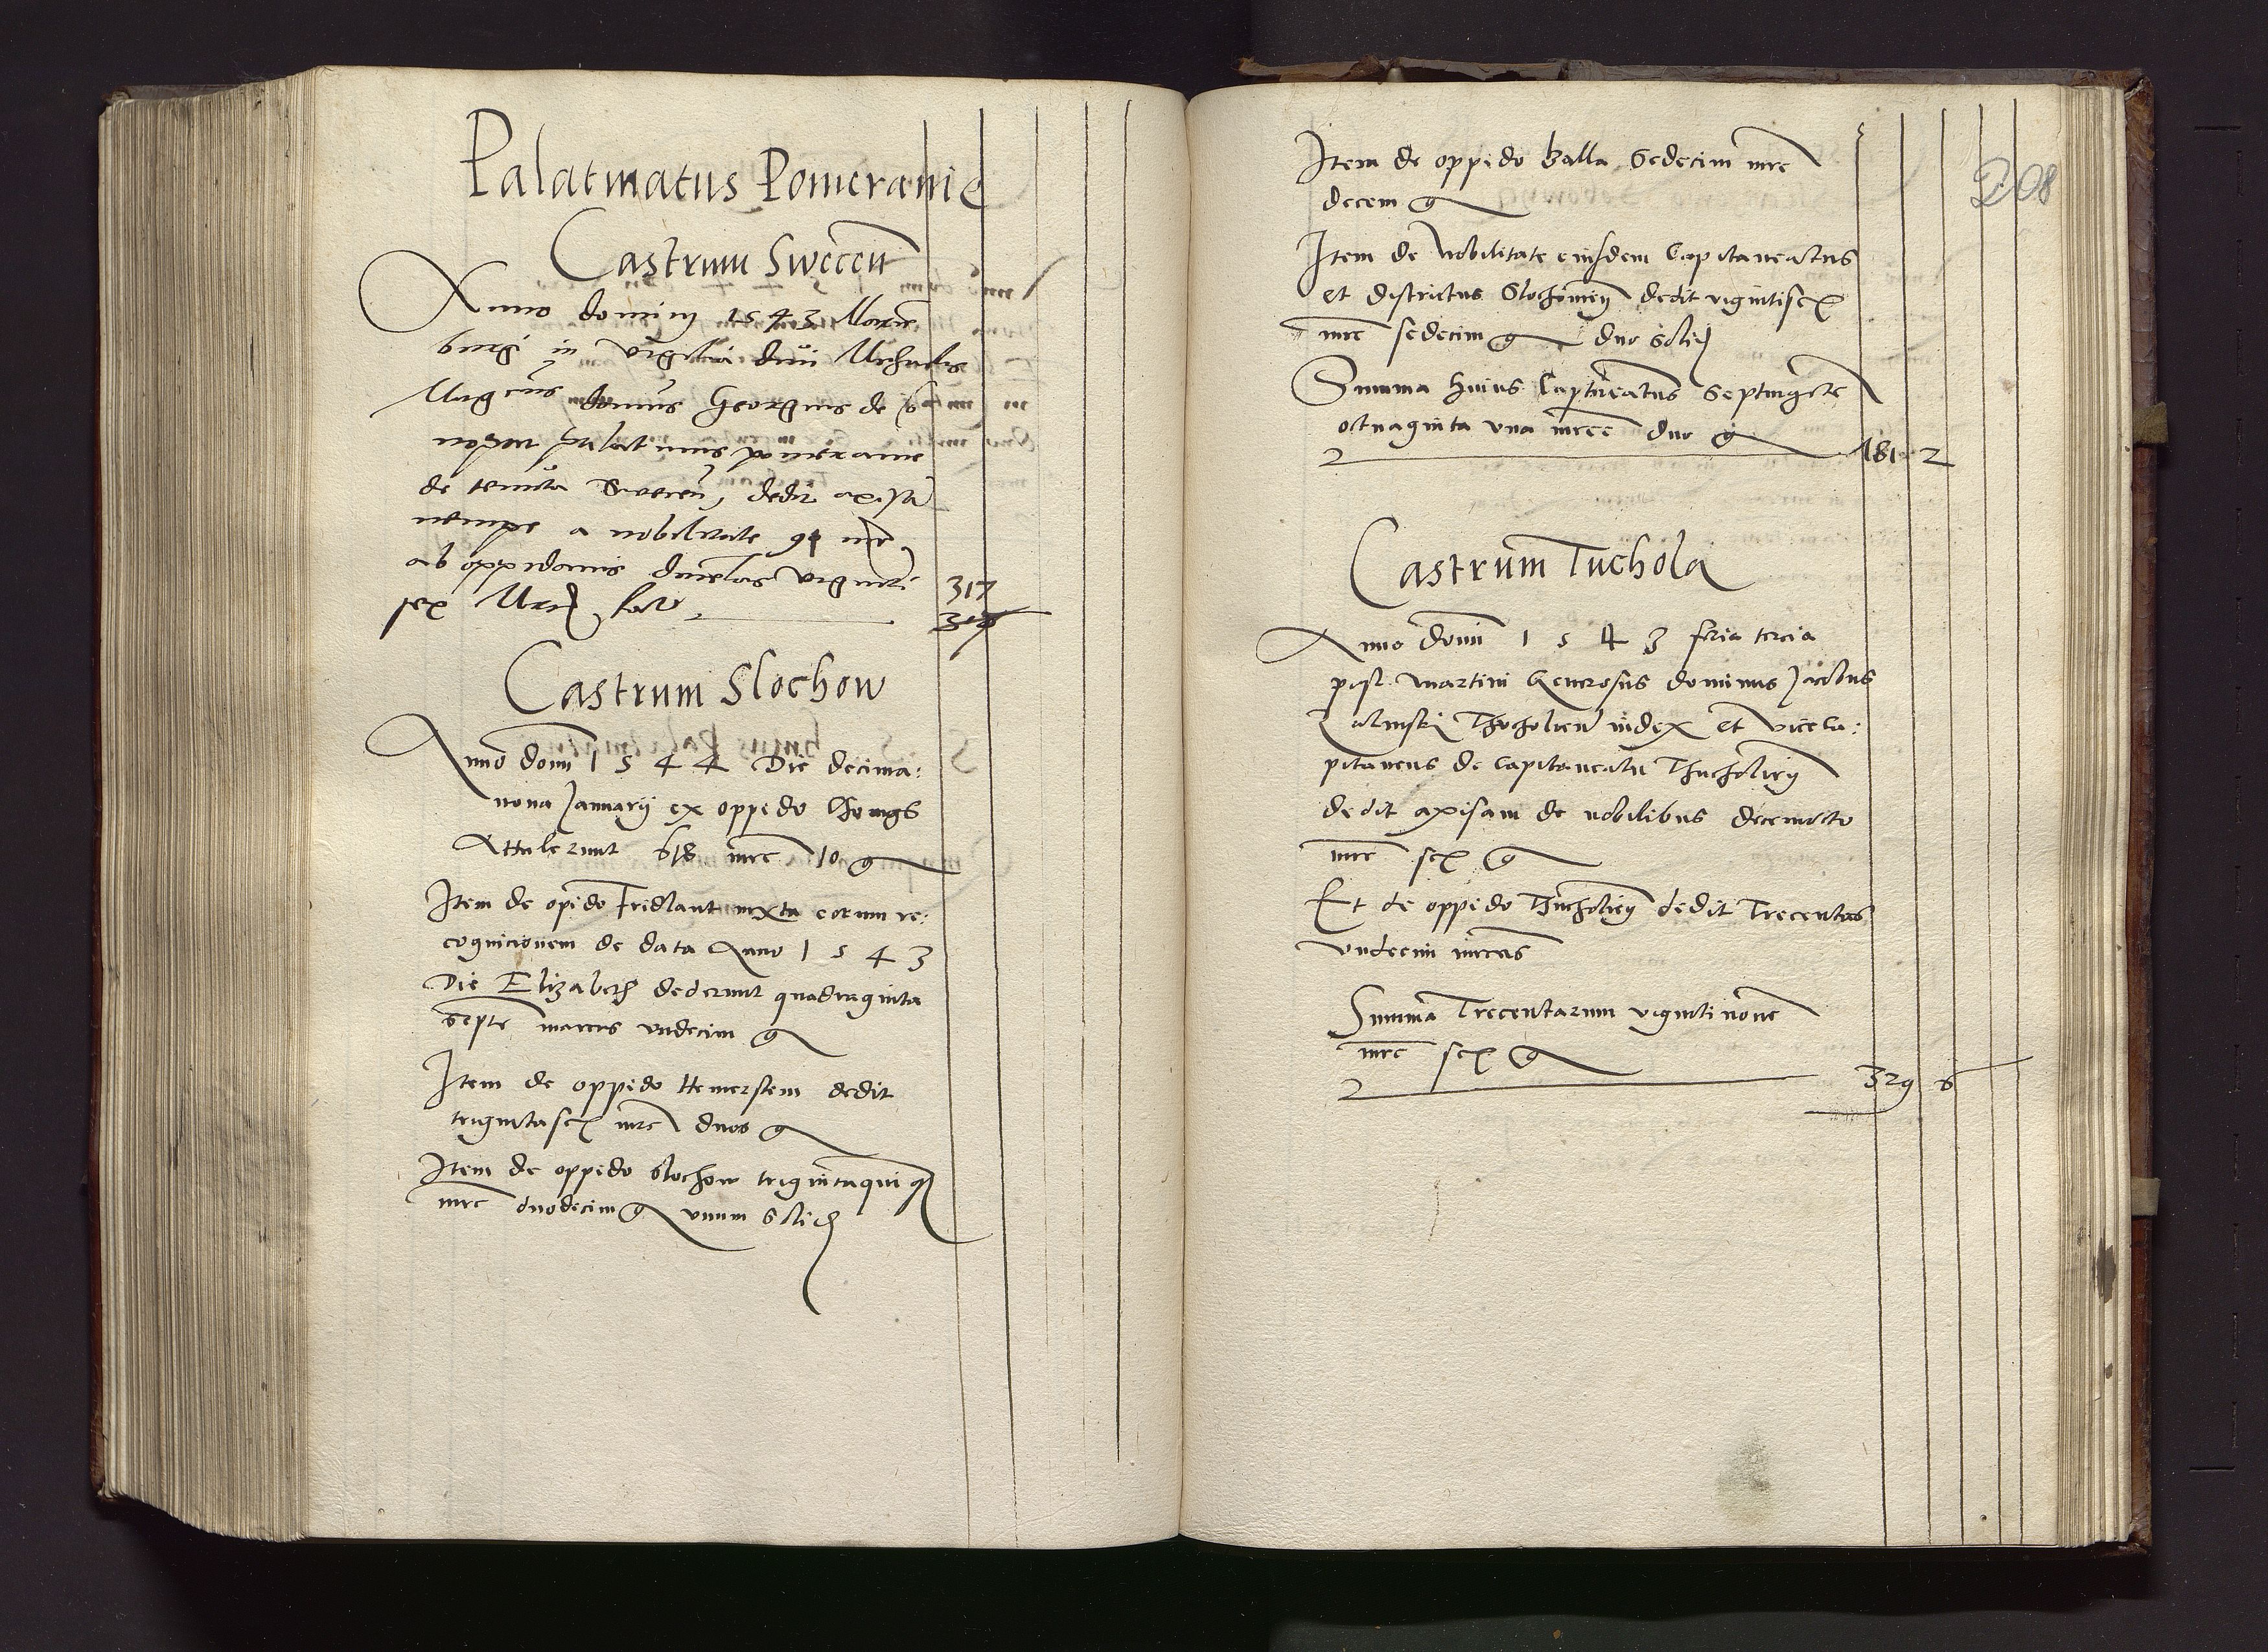 Palatinatus Pomeranie
Castrum Swecen
Anno domini 1543 Marie
burgi in vigilia divi Michaelis
Mag cus domnus Georgius de
palatinus pomeranie
de tenuta Swecen, dedit axisa
nempe a nobilitate 91 mrc
ab oppidanis ducentas viginti
sex Mrc fac
317
Castrum Slochow
Anno domi 1544 Die decima:
nona Januarij ex oppido Choings
Attulerunt 618 mrc 10 g
Item de opido Fridlant iuxta eorum re:
cognicionem de data Anno 1543
Die Elizabeth dederunt quadraginta
septe marcas undecim g
Item de oppido Hemerstein dedit
trigintasex mrc duos g
Item de oppido Slochow trigintaquinq
mrc duodecim g unum Solid
208
Item de oppido Balla Sedecim mrc
decem g
Item de Nobilitate eiusdem Capitaneatus
et districtus Slochovien dedit vigintisex
mrc sedecim g duo Solid
Summa huius Captneatus Septingete
octuaginta una mrce duo g
781 2
Castrum Tuchola
Anno Domi 1543 feria tercia
post Martini Generosus dominus Jacobus
Thucholien iudex et vice Ca:
pitaneus de Capitaneatu Thucholien
dedit axisam de nobilibus decemocto
mrc sex g
Et de oppido Thucholien dedit Trecentas
undecim mrcas
Summa Trecentarum vigintinove
mrc sex g
329 6